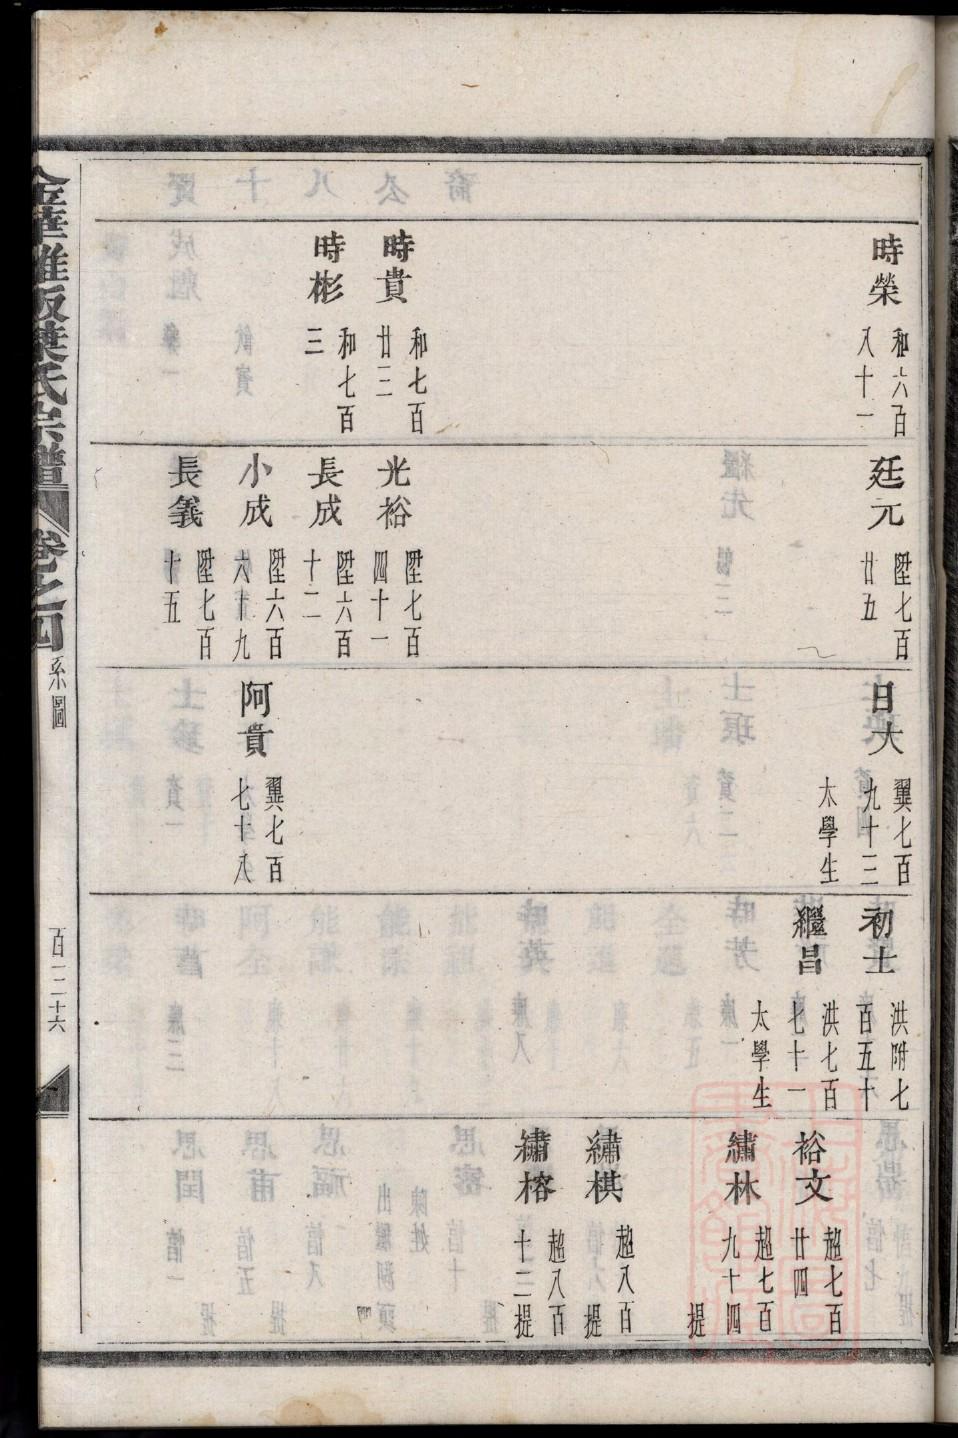 時榮 和六百八十一
時貴 和七百廿三
時彬 和七百三
廷元 陞七百廿五
光裕 陞七百四十一
長成 陞六百十二
小成 陞六百六十九
長義 陞七百十五
日大 翼七百九十三 太學生
阿貴 翼七百七十八
初士 洪附七百五十
繼昌 洪七百七十一 太學生
裕文 趙七百廿四
繡林 趙七百九十四 提
繡棋 趙八百 提
繡榕 趙八百十二 提
葉氏宗譜 卷之四 系圖 百二十六